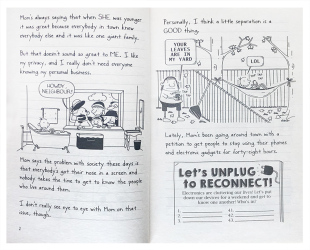 Mom's always saying that when SHE was younger
it was great because everybody in town knew
everybody else and it was like one giant family.
But that doesn't sound so great to ME. I like
my privacy, and I really don't need everyone
knowing my personal business.
HOWDY
NEIGHBOUR!
Mom says the problem with society these days is
that everybody's got their nose in a screen and
nobody takes the time to get to know the people
who live around them.
I don't really see eye to eye with Mom on that
issue, though.
2
Personally, I think a little separation is a
GOOD thing.
YOUR
LEAVES ARE
IN MY
YARD
LOL
Lately, Mom's been going around town with a
petition to get people to stop using their phones
and electronic gadgets for forty-eight hours.
Let's UNPLUG
to RECONNECT!
Electronics are cluttering our lives! Let's put
down our devices for a weekend and get to
know one another! Who's in?